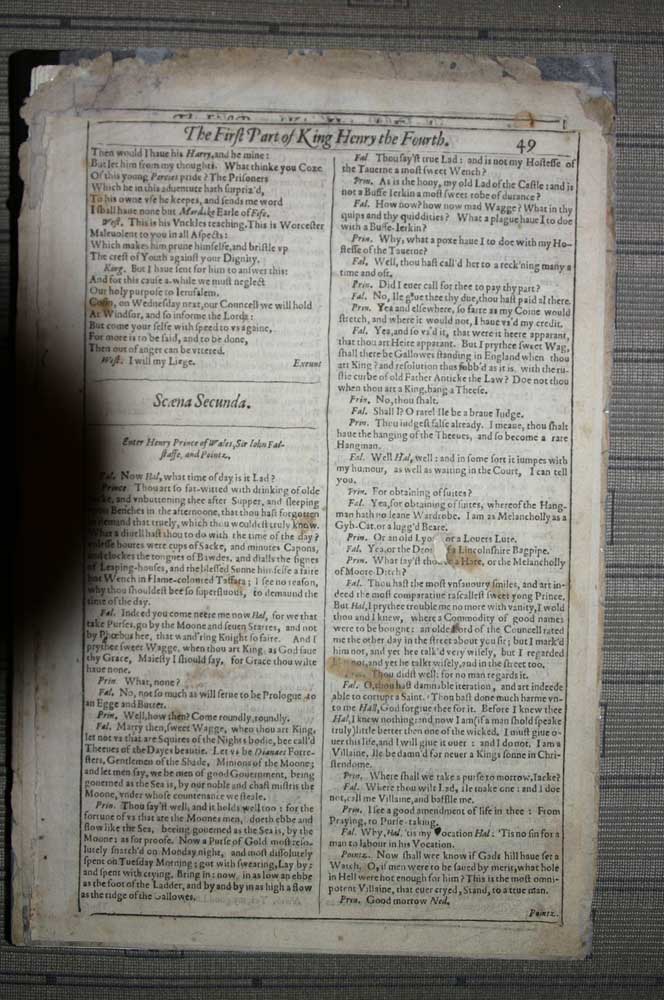 The First Part of King Henry the Fourth.
49
Then would I haue his Harry, and he mine:
But let him from my thoughts. What thinke you Coze
Of this young Percies pride? The Prisoners
Which he in this aduenture hath surpriz'd,
To his owne vse he keepes, and sends me word
I shall haue none but Mordake Earle of Fife.
West. This is his Vnckles teaching. This is Worcester
Maleuolent to you in all Aspects:
Which makes him prune himselfe, and bristle vp
The crest of Youth against your Dignity.
King. But I haue sent for him to answer this:
And for this cause a-while we must neglect
Our holy purpose to Ierusalem.
Cosin, on Wednesday next, our Councell we will hold
At Windsor, and so informe the Lords:
But come your selfe with speed to vs againe,
For more is to be said, and to be done,
Then out of anger can be vttered.
West. I will my Liege. Exeunt
Scæna Secunda.
Enter Henry Prince of Wales, Sir Iohn Fal-
staffe, and Pointz.
Fal. Now Hal, what time of day is it Lad?
Prince. Thou art so fat-witted with drinking of olde
Sacke, and vnbuttoning thee after Supper, and sleeping
vpon Benches in the afternoone, that thou hast forgotten
to demand that truely, which thou wouldest truly know.
What a diuell hast thou to do with the time of the day?
vnlesse houres were cups of Sacke, and minutes Capons,
and clockes the tongues of Bawdes, and dialls the signes
of Leaping-houses, and the blessed Sunne himselfe a faire
hot Wench in Flame-coloured Taffata; I see no reason,
why thou shouldest bee so superfluous, to demaund the
time of the day.
Fal. Indeed you come neere me now Hal, for we that
take Purses, go by the Moone and seuen Starres, and not
by Phœbus hee, that wand'ring Knight so faire. And I
prythee sweet Wagge, when thou art King, as God saue
thy Grace, Maiesty I should say, for Grace thou wilte
haue none.
Prin. What, none?
Fal. No, not so much as will serue to be Prologue to
an Egge and Butter.
Prin. Well, how then? Come roundly, roundly.
Fal. Marry then, sweet Wagge, when thou art King,
let not vs that are Squires of the Nights bodie, bee call'd
Theeues of the Dayes beautie. Let vs be Dianaes Forre-
sters, Gentlemen of the Shade, Minions of the Moone;
and let men say, we be men of good Gouernment, being
gouerned as the Sea is, by our noble and chast mistris the
Moone, vnder whose countenance we steale.
Prin. Thou say'st well, and it holds well too: for the
fortune of vs that are the Moones men, doeth ebbe and
flow like the Sea, beeing gouerned as the Sea is, by the
Moone: as for proofe. Now a Purse of Gold most reso-
lutely snatch'd on Monday night, and most dissolutely
spent on Tuesday Morning; got with swearing, Lay by:
and spent with crying, Bring in: now, in as low an ebbe
as the foot of the Ladder, and by and by in as high a flow
as the ridge of the Gallowes.
Fal. Thou say'st true Lad: and is not my Hostesse of
the Tauerne a most sweet Wench?
Prin. As is the hony, my old Lad of the Castle: and is
not a Buffe Ierkin a most sweet robe of durance?
Fal. How now? how now mad Wagge? What in thy
quips and thy quiddities? What a plague haue I to doe
with a Buffe-Ierkin?
Prin. Why, what a poxe haue I to doe with my Ho-
stesse of the Tauerne?
Fal. Well, thou hast call'd her to a reck'ning many a
time and oft.
Prin. Did I euer call for thee to pay thy part?
Fal. No, Ile giue thee thy due, thou hast paid al there.
Prin. Yea and elsewhere, so farre as my Coine would
stretch, and where it would not, I haue vs'd my credit.
Fal. Yea, and so vs'd it, that were it heere apparant,
that thou art Heire apparant. But I prythee sweet Wag,
shall there be Gallowes standing in England when thou
art King? and resolution thus fobb'd as it is, with the ru-
stie curbe of old Father Anticke the Law? Doe not thou
when thou art a King, hang a Theefe.
Prin. No, thou shalt.
Fal. Shall I? O rare! Ile be a braue Iudge.
Prin. Thou iudgest false already. I meane, thou shalt
haue the hanging of the Theeues, and so become a rare
Hangman.
Fal. Well Hal, well: and in some sort it iumpes with
my humour, as well as waiting in the Court, I can tell
you.
Prin. For obtaining of suites?
Fal. Yea, for obtaining of suites, whereof the Hang-
man hath no leane Wardrobe. I am as Melancholly as a
Gyb-Cat, or a lugg'd Beare.
Prin. Or an old Lyon, or a Louers Lute.
Fal. Yea, or the Drone of a Lincolnshire Bagpipe.
Prin. What say'st thou to a Hare, or the Melancholly
of Moore-Ditch?
Fal. Thou hast the most vnsauoury smiles, and art in-
deed the most comparatiue rascallest sweet yong Prince.
But Hal, I prythee trouble me no more with vanity, I wold
thou and I knew, where a Commodity of good names
were to be bought: an olde Lord of the Councell rated
me the other day in the street about you sir; but I mark'd
him not, and yet hee talk'd very wisely, but I regarded
him not, and yet he talkt wisely, and in the street too.
Prin. Thou didst well: for no man regards it.
Fal. O, thou hast damnable iteration, and art indeede
able to corrupt a Saint. Thou hast done much harme vn-
to me Hall, God forgiue thee for it. Before I knew thee
Hal, I knew nothing: and now I am (if a man shold speake
truly) little better then one of the wicked. I must giue o-
uer this life, and I will giue it ouer: and I do not, I am a
Villaine, Ile be damn'd for neuer a Kings sonne in Chri-
stendome.
Prin. Where shall we take a purse to morrow, Iacke?
Fal. Where thou wilt Lad, Ile make one: and I doe
not, call me Villaine, and baffle me.
Prin. I see a good amendment of life in thee: From
Praying, to Purse-taking.
Fal. Why, Hal, 'tis my Vocation Hal: 'Tis no sin for a
man to labour in his Vocation.
Pointz. Now shall wee know if Gads hill haue set a
Watch. O, if men were to be saued by merit, what hole
in Hell were hot enough for him? This is the most omni-
potent Villaine, that euer cryed, Stand, to a true man.
Prin. Good morrow Ned.
Pointz.